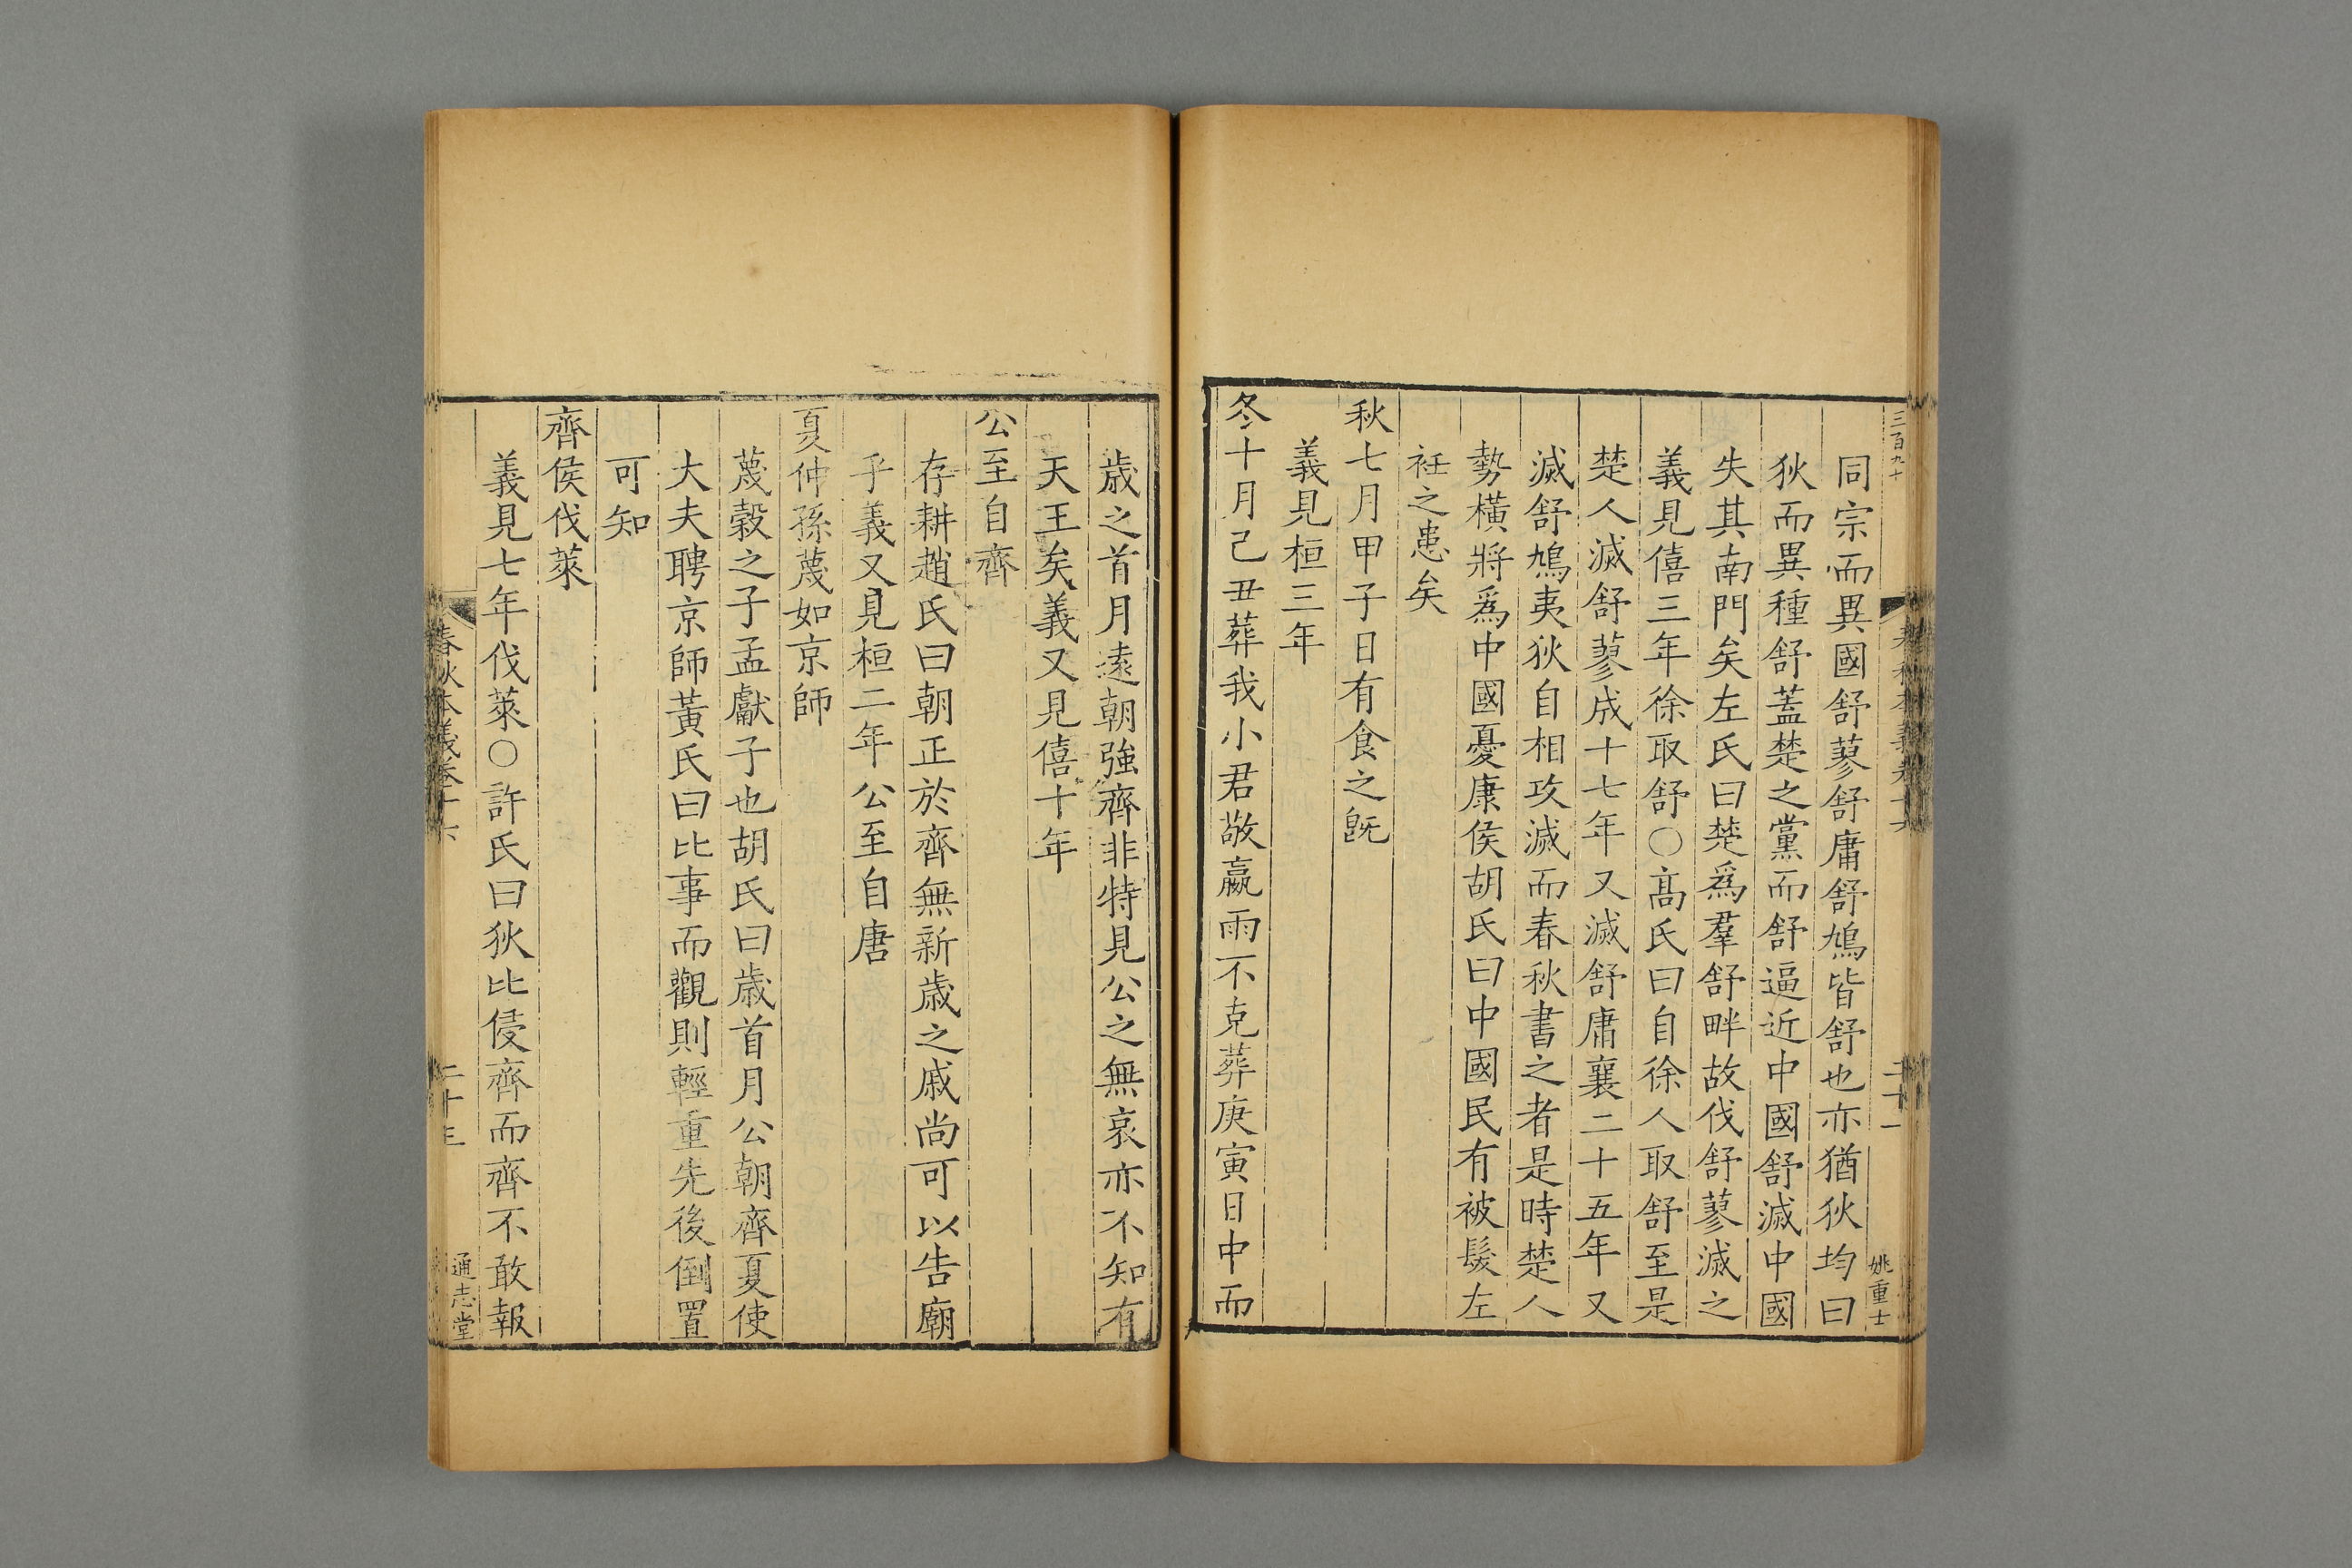 三百九十
同宗而異國舒蓼舒庸舒鳩皆舒也亦猶狄均曰
狄而異種舒蓋楚之黨而舒逼近中國舒滅中國
失其南門矣左氏曰楚爲羣舒畔故伐舒蓼滅之
義見僖三年徐取舒○髙氏曰自徐人取舒至是
楚人滅舒蓼成十七年又滅舒庸襄二十五年又
滅舒鳩夷狄自相攻滅而春秋書之者是時楚人
勢橫將爲中國憂康侯胡氏曰中國民有被髮左
衽之患矣
秋七月甲子日有食之旣
義見桓三年
冬十月己丑葬我小君敬嬴雨不克葬庚寅日中而
姚重士
歲之首月遠朝強齊非特見公之無哀亦不知有
天王矣義又見僖十年
公至自齊
存耕趙氏曰朝正於齊無新歲之戚尚可以告廟
乎義又見桓二年公至自唐
夏仲孫蔑如京師
蔑榖之子孟獻子也胡氏曰歲首月公朝齊夏使
大夫聘京師黃氏曰比事而觀則輕重先後倒置
可知
齊侯伐萊
義見七年伐萊○許氏曰狄比侵齊而齊不敢報
春秋本義卷十六
二十三
通志堂